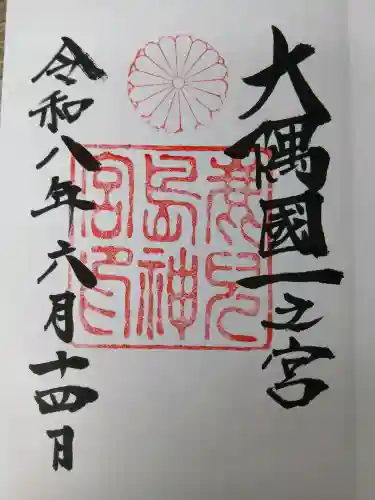 大隅國一之宮
鹿児
島神
宮印
令和八年六月十四日